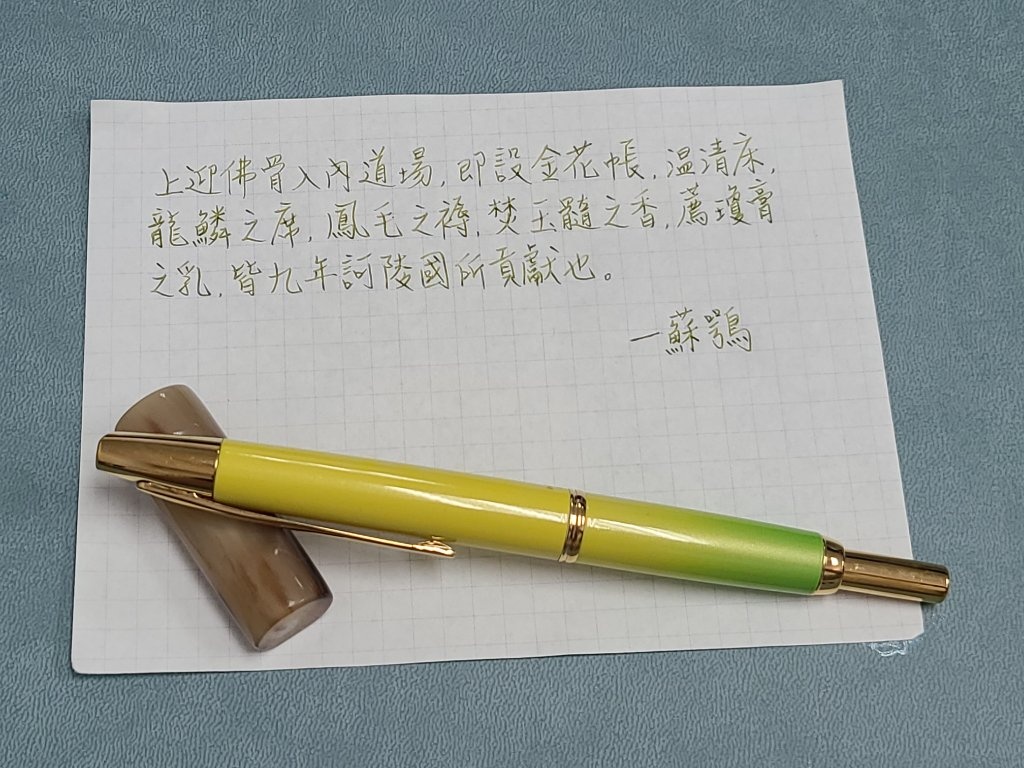 上迎佛骨入內道場,即設金花帳,温清床,
龍鱗之席,鳳毛之褥,焚玉髓之香,薦瓊膏
之乳,皆九年訶陵國所貢獻也。
—蘇鶚